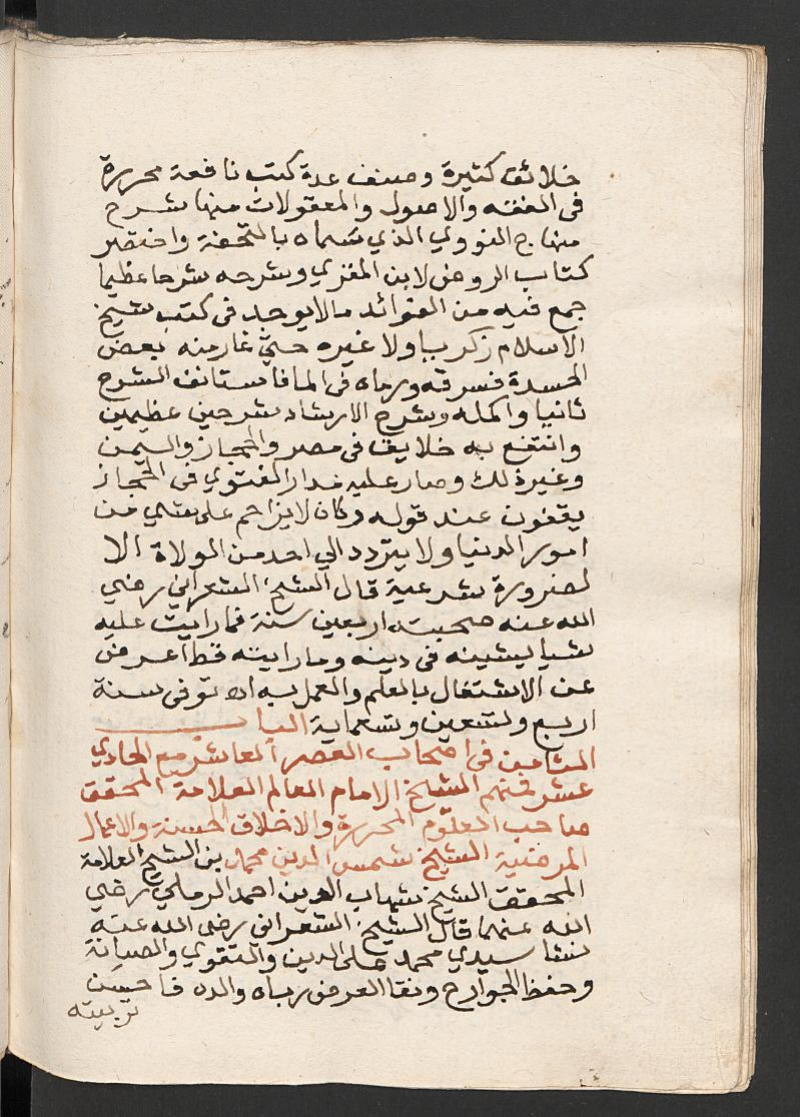 خلائق كثيرة وصنف عدة كتب نافعة محررة
فى الفقه والاصول والمعقولات منها شرح
منهاج النووي الذي سماه بالتحفة واختصر
كتاب الروض لابن المقري وشرحه شرحا عظيما
جمع فيه من الفوائد مالايوجد فى كتب شيخ
الاسلام زكريا ولا غيره حتى غار منه بعض
الحسدة فسرقه ورماه فى الما فاستانف الشرح
ثانيا واكمله وشرح الارشاد شرحين عظيمين
وانتفع به خلايق فى مصر والحجاز واليمن
وغير ذلك وصار عليه مدار الفتوي فى الحجاز
يقفون عند قوله وكان لايزاحم على شي من
امور الدنيا ولا يتردد الي احد من الولاة الا
لضرورة شرعية قال الشيخ الشعراني رضي
الله عنه صحبته اربعين سنة فما رايت عليه
شيا يشينه فى دينه وما رايته قط اعرض
عن الاشتغال بالعلم والعمل به توفى سنة
اربع وتسعين وتسعماية الباب
الثامن فى اصحاب العصر العاشر مع الحادي
عشر فمنهم الشيخ الامام العالم العلامة المحقق
صاحب العلوم المحررة والاخلاق الحسنة والاعمال
المرضية الشيخ شمس الدين محمد بن الشيخ العلامة
المحقق الشيخ شهاب الدين احمد الرملي رضي
الله عنهما قال الشيخ الشعراني رضى الله عنه
نشا سيدي محمد على الدين والتقوي والصيانة
وحفظ الجوارح ونقا العرض رباه والده فاحسن
تربيته